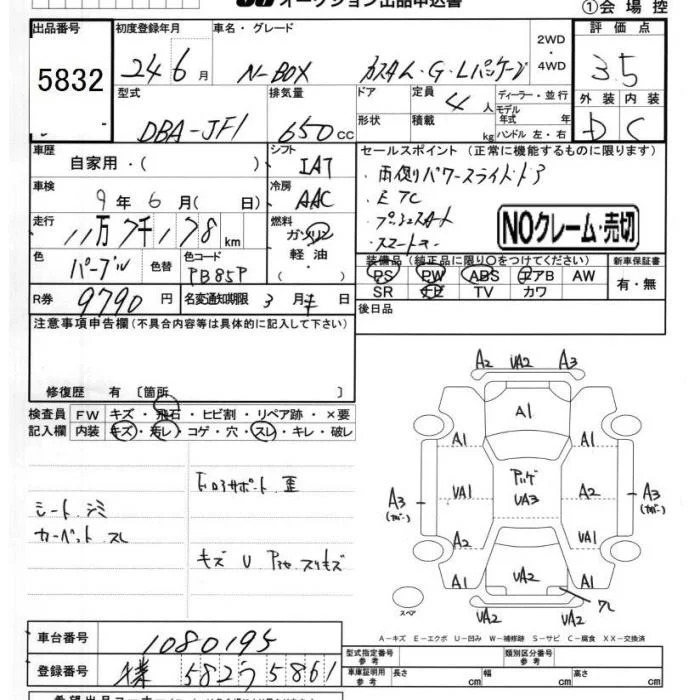 オークション出品申込書
①会場控
出品番号 初度登録年月 車名・グレード 2WD・4WD 評価点
5832 24 6月 N-BOX カスタム・G・Lパッケージ 3.5
型式 排気量 ドア 定員 4人 ディーラー・並行 外装 内装
モデル年式 年
DBA-JF1 650cc 形状 積載 kg ハンドル 左・右 D C
車歴 シフト セールスポイント (正常に機能するものに限ります)
自家用・( ) IAT ・両側パワースライドドア
車検 冷房 ・ETC
9年6月( 日) AAC ・プッシュスタート
走行 燃料 ・スマートキー
11万7千178km ガソリン NOクレーム・売切
軽油・( )
色 色替 色コード 装備品 (純正品に限り○をつけてください) 新車保証書
パープル PB85P PS PW ABS エアB AW 有・無
SR TV カワ
R券 9790円 名変通知期限 3月 日 後日品
注意事項申告欄(不具合内容等は具体的に記入して下さい)
修復歴 有〔箇所 〕
検査員 FW キズ・飛石・ヒビ割・リペア跡・×要
記入欄 内装 キズ・汚レ・コゲ・穴・スレ・キレ・破レ
シート シミ
カーペット スレ
キズ U
A2 UA2 A3
A1
A1 A1
UA3
A3 UA1 A2 A3
A2 UA1
A1 UA2 A1
UA2 UA2
スペア
A-キズ E-エクボ U-凹み W-補修跡 S-サビ C-腐食 XX-交換済
車台番号 1080195
型式指定番号 参考 類別区分番号 参考
登録番号 582 5861
車庫証明用 参考 長さ cm 幅 cm 高さ cm